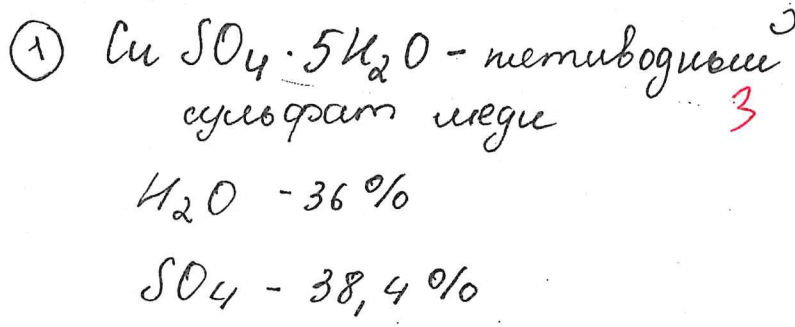 ① CuSO₄·5H₂O - петиводный
сульфат меди 3
H₂O - 36%
SO₄ - 38,4%